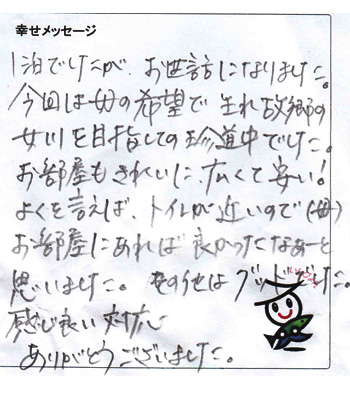 幸せメッセージ
1泊でしたが、お世話になりました。
今回は母の希望で生れ故郷の
女川を目指しての珍道中でした。
お部屋もきれいに広くて安い!
よくを言えば、トイレが近いので(母)
お部屋にあれば良かったなぁーと
思いました。その他はグッドでした。
感じ良い対応
ありがとうございました。